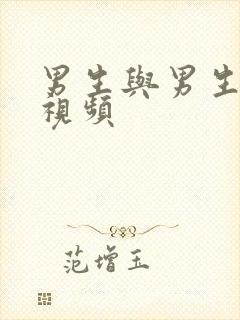 男生與男生
視頻
范增玉